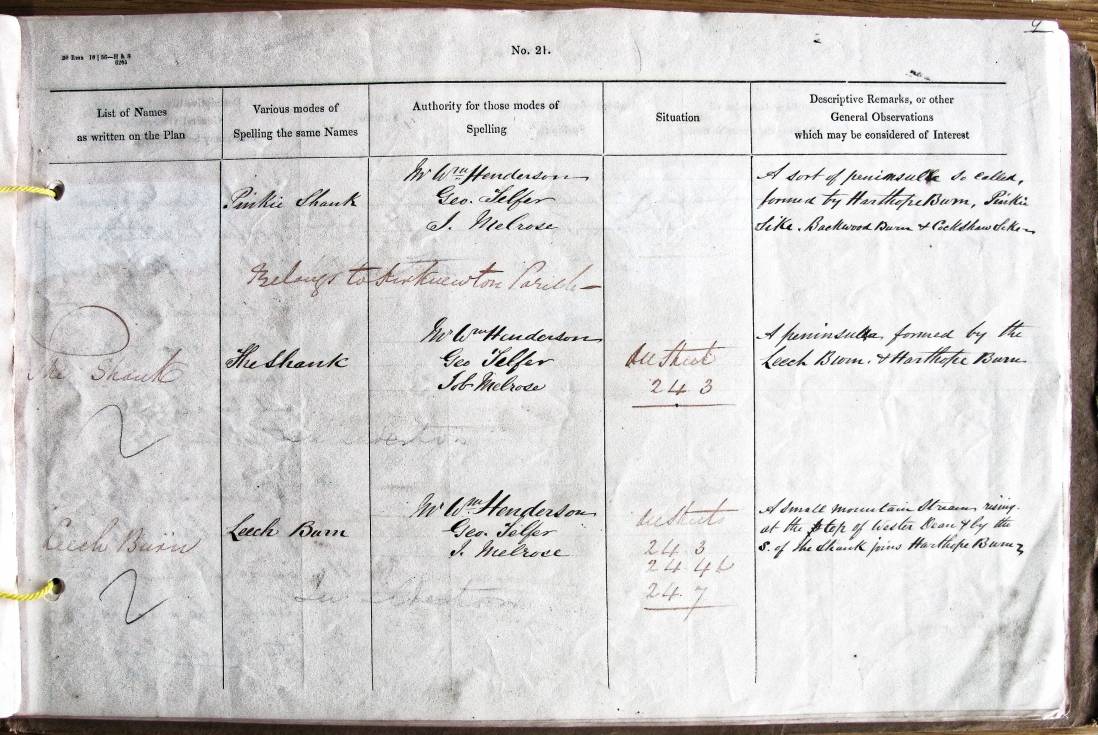 9
No. 21.
List of Names
as written on the Plan
Various modes of
Spelling the same Names
Authority for those modes of
Spelling
Situation
Descriptive Remarks, or other
General Observations
which may be considered of Interest
Pinkie Shank
Mr Wm Henderson
Geo. Telfer
J. Melrose
A sort of peninsulla so called,
formed by Harthope Burn, Pinkie
Sike, Backwood Burn & Cockshaw Sike
Belongs to Kirknewton Parish
The Shank
The Shank
Mr Wm Henderson
Geo Telfer
Job Melrose
See Sheet
243
A peninsulla formed by the
Leech Burn & Harthope Burn
Leech Burn
Leech Burn
Mr Wm Henderson
Geo. Telfer
J. Melrose
See Sheets
243
244
247
A small mountain Stream rising
at the top of Wester Dean & by the
S. of The Shank joins Harthope Burn